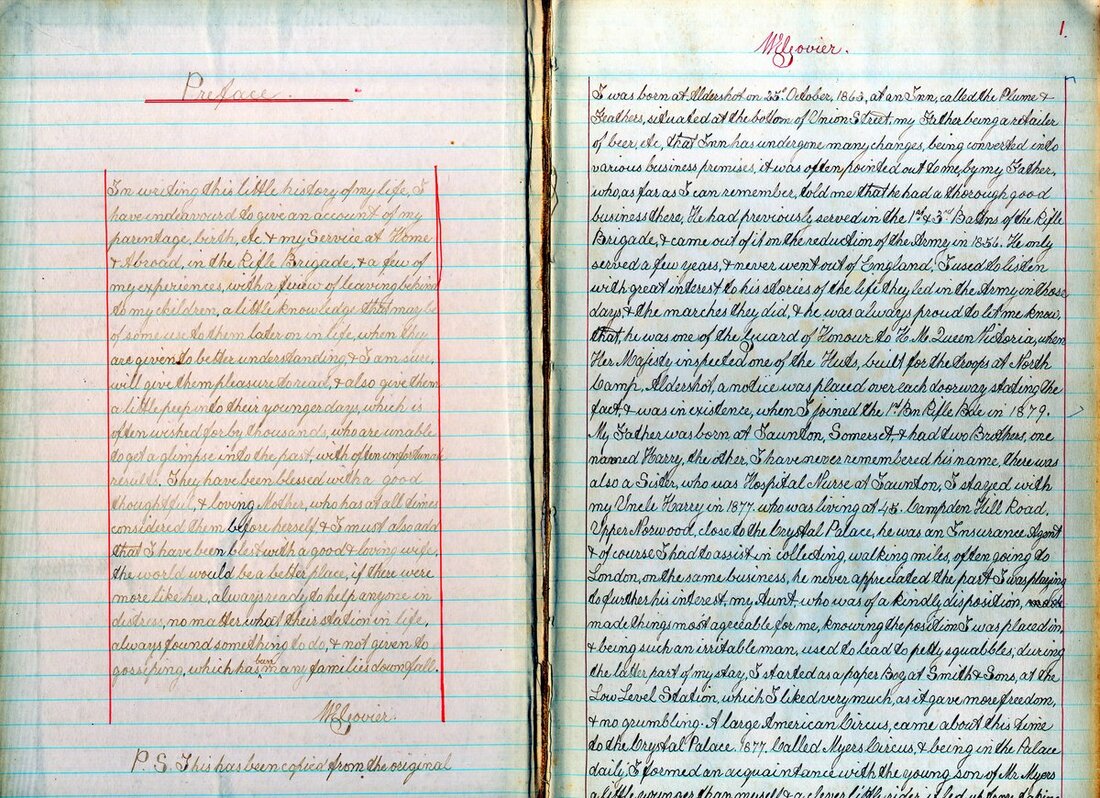 Preface.
In writing this little history of my life, I
have indeavourd to give an account of my
parentage, birth, etc & my Service at Home
& Abroad, in the Rifle Brigade, & a few of
my experiences, with a view of leaving behind
to my children, a little knowledge that may be
of some use to them later on in life, when they
are given to better understanding & I am sure,
will give them pleasure to read, & also give them
a little peep into their younger days, which is
often wished for by thousands, who are unable
to get a glimpse into the past, with often unfortunate
results. They have been blessed with a good
thoughtful, & loving Mother, who has at all times
considered them before herself & I must also add
that I have been blest with a good & loving wife,
the world would be a better place, if there were
more like her, always ready to help anyone in
distress, no matter what their station in life,
always found something to do, & not given to
gossiping, which has been many families downfall.
WGovier.
P.S. This has been copied from the original
1.
WGovier.
I was born at Aldershot on 25th October, 1863, at an Inn, called the Plume &
Feathers, situated at the bottom of Union Street, my Father being a retailer
of beer, etc, that Inn has undergone many changes, being converted into
various business premises, it was often pointed out to me, by my Father,
who as far as I can remember, told me that he had a thorough good
business there, He had previously served in the 1st & 3rd Battns of the Rifle
Brigade, & came out of it on the reduction of the Army in 1856. He only
served a few years, & never went out of England, I used to listen
with great interest to his stories of the life they led in the Army in those
days, & the marches they did, & he was always proud to let me know,
that, he was one of the Guard of Honour to H.M. Queen Victoria, when
Her Majesty inspected one of the Huts, built for the troops at North
Camp, Aldershot, a notice was placed over each doorway stating the
fact, & was in existence, when I joined the 1st Bn Rifle Bde in 1879.
My Father was born at Taunton, Somerset, & had two Brothers, one
named Harry, the other, I have never remembered his name, there was
also a Sister, who was Hospital Nurse at Taunton, I stayed with
my Uncle Harry in 1877. who was living at 45. Campden Hill Road,
Upper Norwood, close to the Crystal Palace, he was an Insurance Agent
& of course I had to assist in collecting, walking miles, often going to
London, on the same business, he never appreciated the part I was playing
to further his interest, my Aunt, who was of a kindly disposition,
made things most agreeable for me, knowing the position I was placed in,
& being such an irritable man, used to lead to petty squabbles, during
the latter part of my stay, I started as a paper Boy at Smith & Sons, at the
Low Level Station, which I liked very much, as it gave more freedom,
& no grumbling. A large American Circus, came about this time
to the Crystal Palace. 1877. Called Myers Circus, & being in the Palace
daily, I formed an acquaintance with the young son of Mr Myers
a little younger than myself & a clever little rider